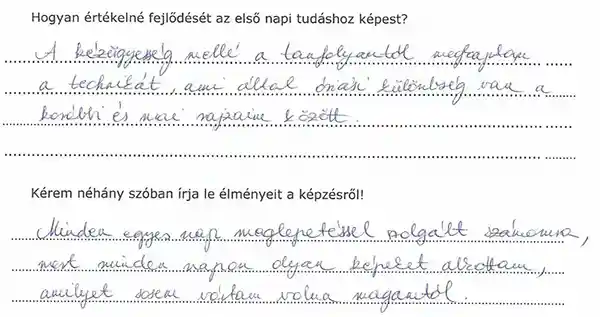 Hogyan értékelné fejlődését az első napi tudáshoz képest?
A kézügyesség mellé a tanfolyamtól megkaptam
a technikát, ami által óriási különbség van a
korábbi és mai rajzaim között.
Kérem néhány szóban írja le élményeit a képzésről!
Minden egyes nap meglepetéssel szolgált számomra,
mert minden napon olyan képeket alkottam,
amilyet sosem vártam volna magamtól.